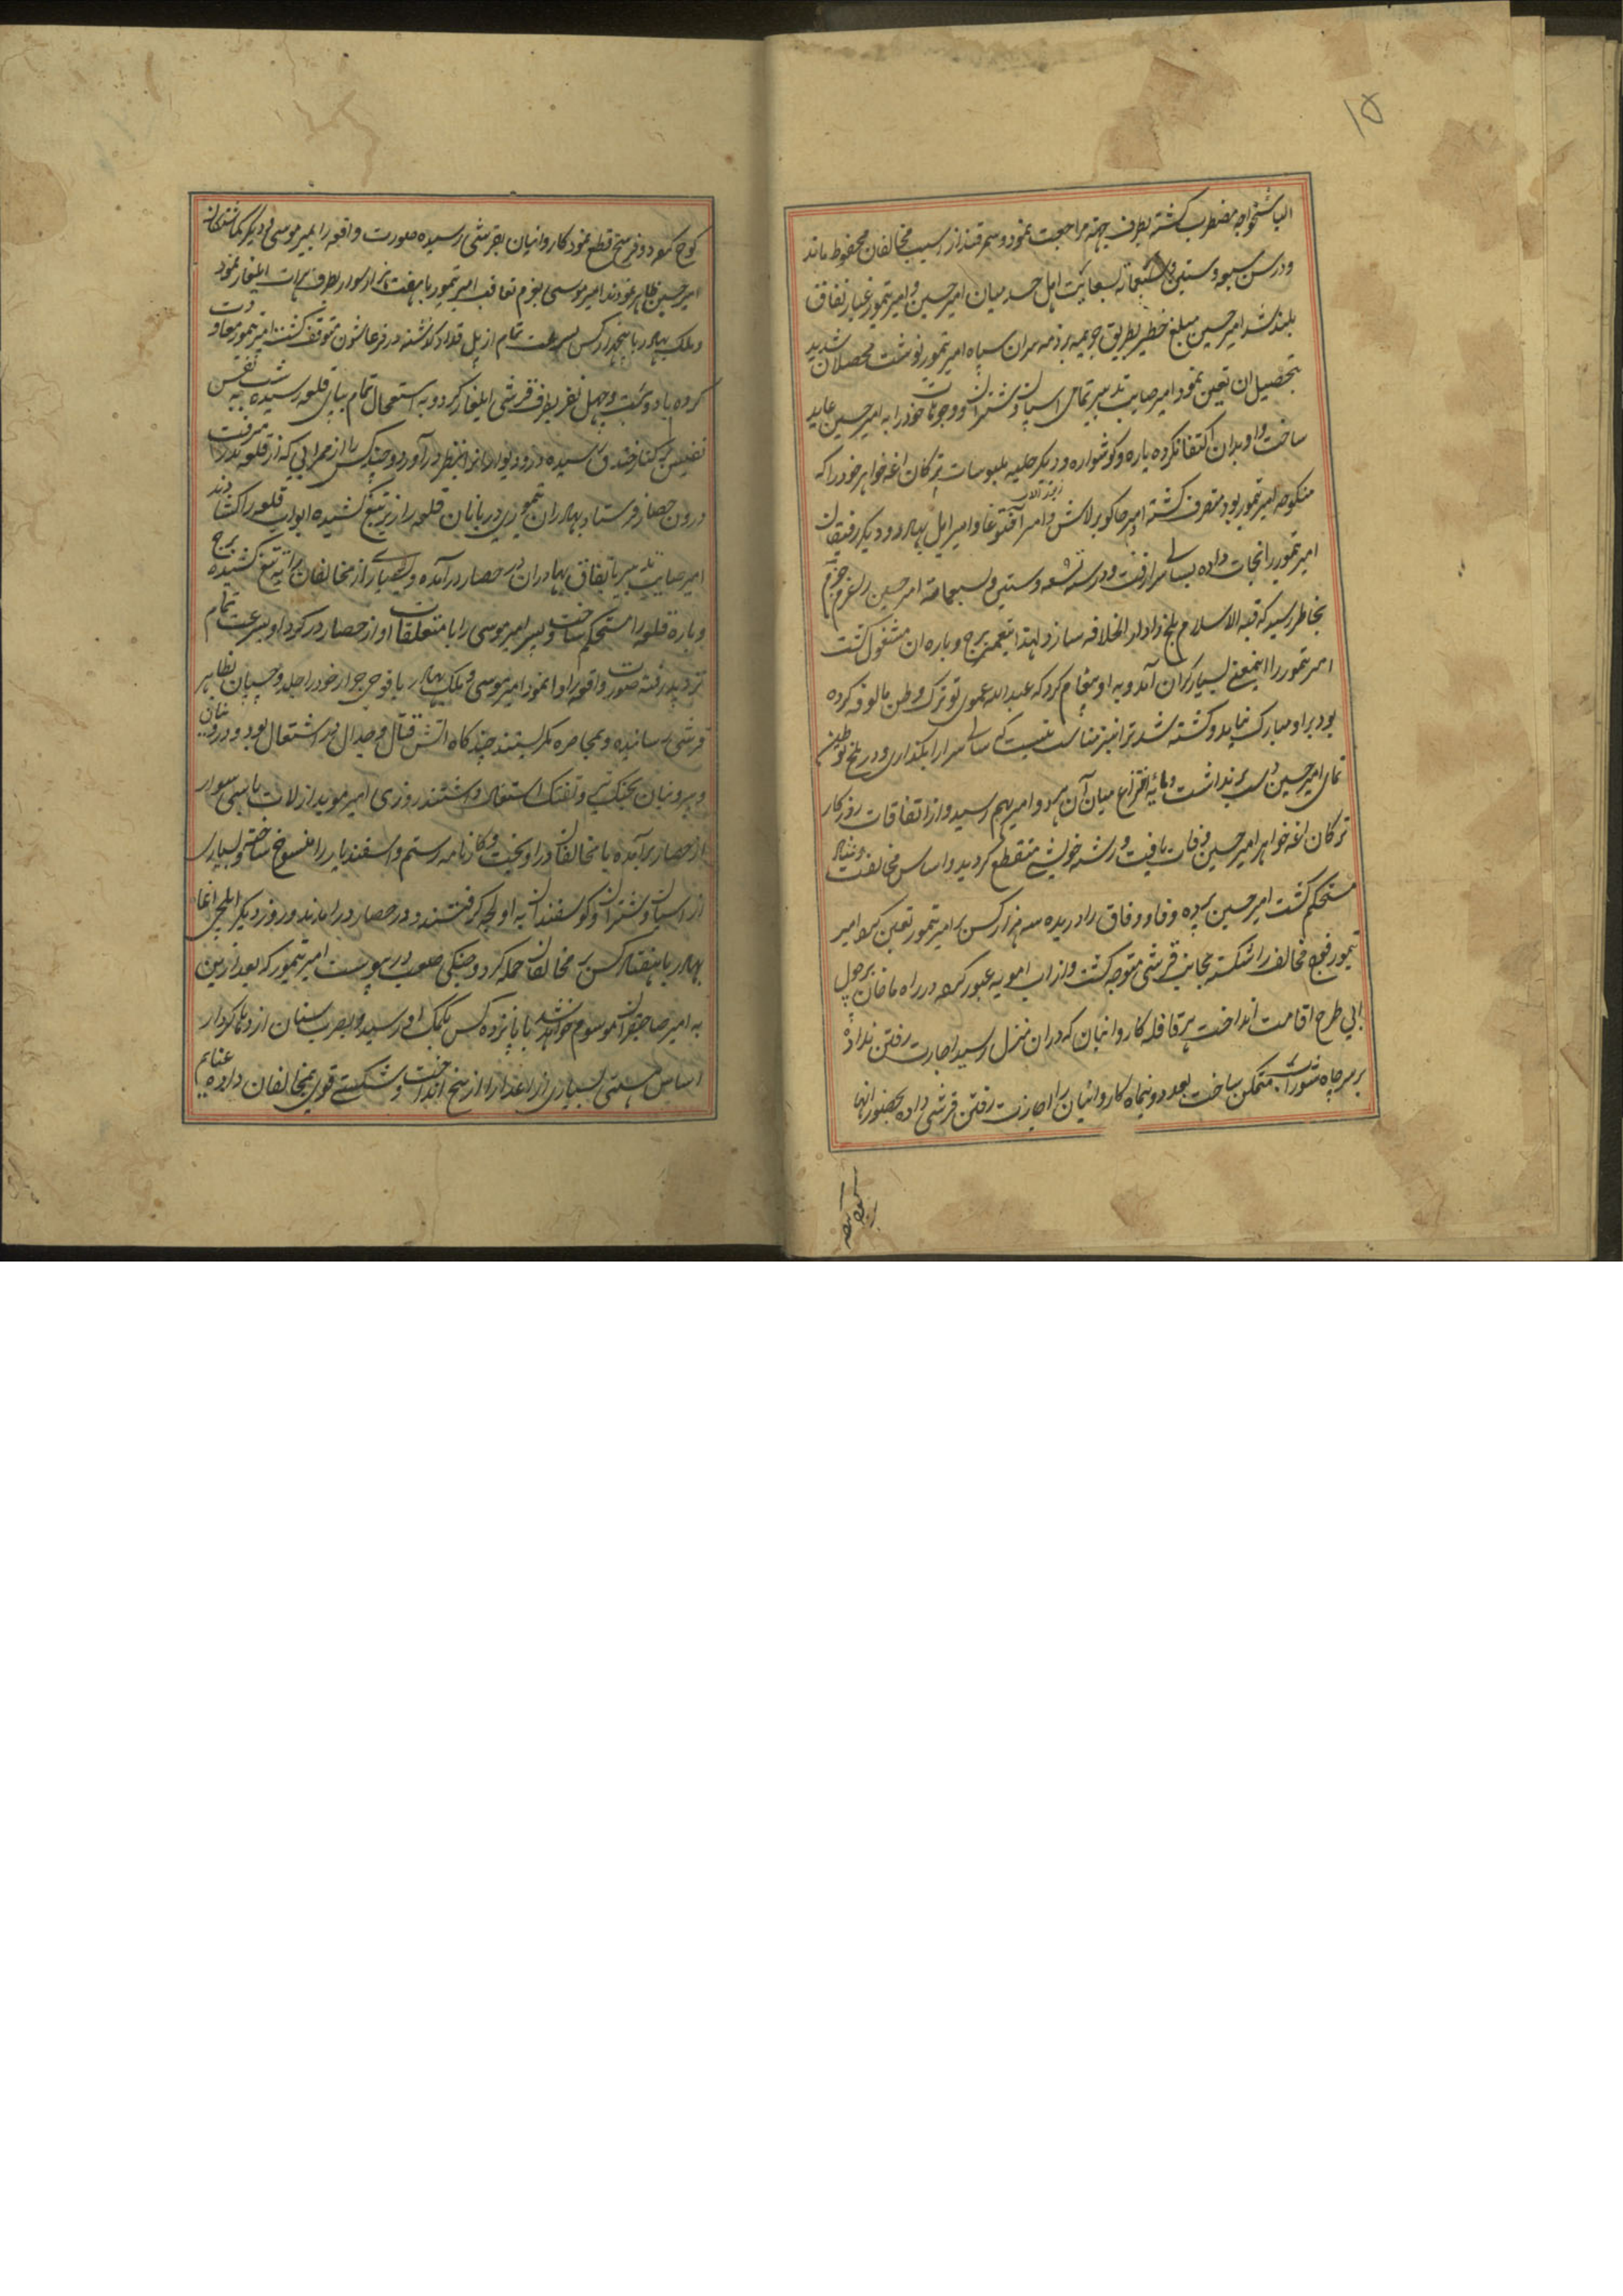 ۱۵
الیاسخواجه مضطرب گشته بطرف جته مراجعت نمود و سمرقند از آسیب مخالفان محفوظ ماند
و در سن سبع و ستین و سبعمائه بسعایت اهل حسد میان امیر حسین و امیر تیمور غبار نفاق
بلند شد امیر حسین مبلغ خطیر بطریق جریمه بر ذمه سران سپاه امیر تیمور نوشت محصلان شدید
بتحصیل ان تعین نمود امیر صایب تدبیر تمامی اسپان و شتران و وجوهات خود را به امیر حسین عاید
ساخت و او بدان اکتفا نکرده یاره و گوشواره و دیگر حلیه ملبوسات ترکان اغه خواهر خود را که
منکوحه امیر تمور بود متصرف گشته امیر جاکو برلاس و امیر آقتوغا و امیر ایل بهادر و دیگر رفیقان
امیر تمور را نجات داده بسالی سرا رفت و در سنه تسعه و ستین و سبعمائه امیر حسین را عزم جزم
بخاطر رسید که قبه الاسلام بلخ را دار الخلافه سازد لهذا بتعمیر برج و باره ان مشغول گشت
امیر تمور را اینمعنی بسیار گران آمد و به او پیغام کرد که عبدالله عموی تو ترک وطن مالوفه کرده
بود بر او مبارک نیامد و کشته شد ترا نیز مناسب نیست که سالی سرا را بگذاری و در بلخ توطن
نمای امیر حسین دست برنداشت و مایه نزاع میان آن هر دو امیر بهم رسید و از اتفاقات روزگار
ترکان اغه خواهر امیر حسین وفات یافت و رشته خویشی منقطع گردید و اساس مخالفت
مستحکم گشت امیر حسین پرده وفا و وفاق را دریده سه هزار کس بر امیر تیمور تعین کرد امیر
تیمور فوج مخالف را شکسته بجانب قرشی متوجه گشت و از اب امویه عبور کرده در راه ماخان بر حول
ابی طرح اقامت انداخت هر قافله کاروانیان که دران منزل رسید اجازت رفتن نداده
بر سر چاه شوراب متمکن ساخت بعد دو نیم ماه کاروانیان را اجازت رفتن قرشی داده بحضور انها
کوچ کرد و دو فرسخ قطع نمود کاروانیان بقرشی رسیده صورت واقعه را بامیر موسی و دیگر گماشتگان
امیر حسین ظاهر نمودند امیر موسی بعزم تعاقب امیر تیمور با هفت هزار سوار بطرف هرات ایلغار نمود
و ملک بهادر با پنجهزار کس بسرعت تمام از پل قداد گذشته در قرغاشون متوقف گشت امیر تمور معاودت
کرده با دویست و چهل نفر بطرف قرشی ایلغار کرد و به استعجال تمام بپای قلعه رسیده شب به نفس
نفیس بر کنار خندق رسیده در و دیوار را بنظر در آورد و چند کس را از ممر آبی که از قلعه بدر میرفت
درون حصار فرستاد بهادران تیموری دربانان قلعه را زیر تیغ کشیده ابواب قلعه را گشادند
امیر صایب تدبیر باتفاق بهادران در حصار در آمده و بسیار از مخالفان را بته تیغ کشیده برج
و باره قلعه را مستحکم ساخت و پسر امیر موسی را با متعلقان او از حصار در کرد او بسرعت تمام
نزد پدر رفته صورت واقعه را وا نمود امیر موسی و ملک بهادر با فوج جرار خود را جلد و چسپان بظاهر
قرشی رسانیده و بمحاصره کمر بستند چند گاه اتش قتال و جدال در اشتعال بود و درونیان
و بیرونیان بجنگ تیر و تفنگ استعمال داشتند روزی امیر موید ارلات با سی سوار
از حصار برآمده با مخالفان در اویخت و کارنامه رستم و اسفندیار را منسوخ ساخت و بسیاری
از اسپان و شتران و گوسفندان به اولجه گرفتند و در حصار در امدند و روز دیگر ایلچی اغا
بهادر با هفتاد کس بر مخالفان حمله کرد و جنگی صعب در پیوست امیر تیمور که بعد ازین
به امیر صاحبقران موسوم خواهد شد با پانزده کس بکمک او رسید و بضرب سنان اژدها کردار
اساس هستی بسیاری از اعدا را از بیخ انداخت و شکستی قوی بمخالفان داده غنایم